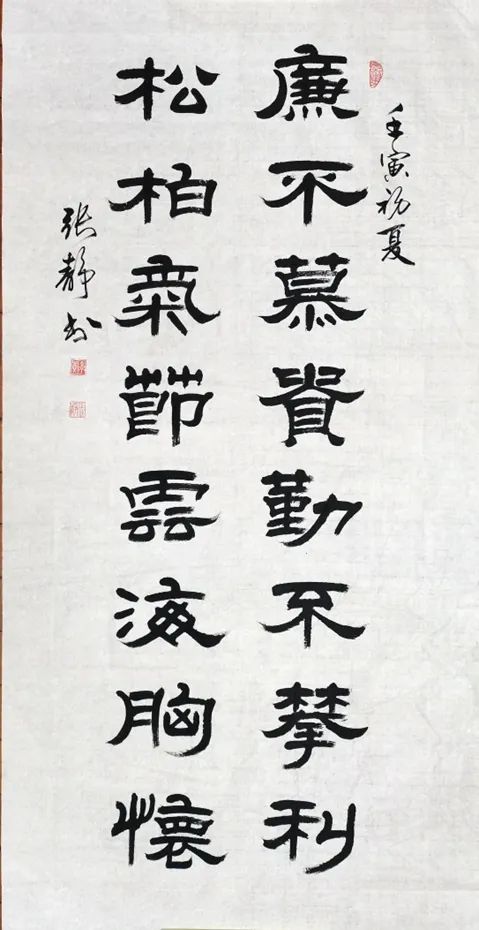 壬寅初夏
廉不慕貴勤不攀利
松柏氣節雲海胸懷
張靜书